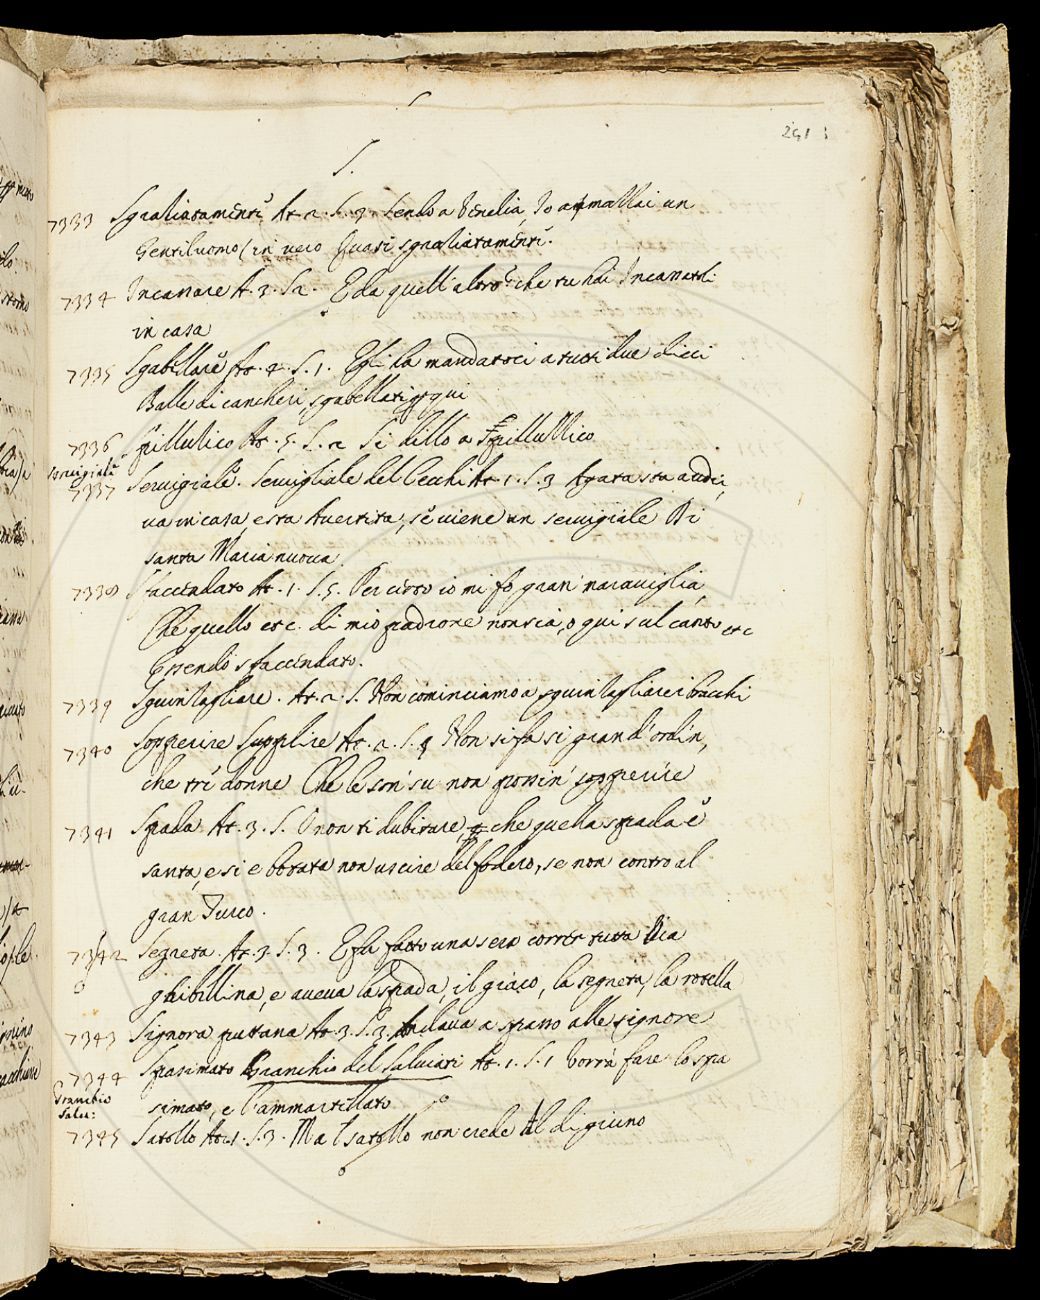 291
S.
7333 Sgraliatamente At. 2. S. 3. sendo a Venelia, Io ammallai un
Gentiluomo (in vero quasi sgraliatamente.
7334 Incanare At. 3. S. 2. E da quell'altro che tu hai Incanatoli
in casa
7335 Sgabellare At. 4. S. 1. Egli ha mandatoci a tutti due dieci
Balle di cancheri, sgabellati qui
7336 Spillulico At. 5. S. 2 Si dillo a Spillullico
Servigiale
7337 Servigiale. Servigliale del Cecchi At. 1. S. 3 Agata sta a udir,
va in casa, e sta Avertita, se viene un servigiale Di
santa Maria nuova
7338 Sfaccendato At. 1. S. 5. Per certo io mi fo gran maraviglia,
Che quello etc. di mio padrone non sia, o qui sul canto etc
Essendo sfaccendato.
7339 Sguinlagliare. At. 2. S. Non cominciamo a sguinlagliare i bracchi
7340 Sopperire Supplire At. 2. S. 4 Non si fa si grand' ordin,
che tre donne Che le son' su non possin' sopperire
7341 Spada At. 3. S. O non ti dubitare, che quella spada è
santa, e si è botata non uscire del fodero, se non contro al
gran Turco.
7342 Segreta. At. 3. S. 3. E fa fatto una sera correr tutta Via
ghibillina, e aveva la spada, il giaco, la segreta, la rotella
7343 Signora putana At. 3. S. 3. Andava a spasso alle signore
7344 Spasimato Granchio del Salviati At. 1. S. 1 Vorrà fare lo spa
Granchio
Salv:
simato, e l'ammartellato
7345 Satollo At. 1. S. 3. Ma l satollo non crede Al digiuno